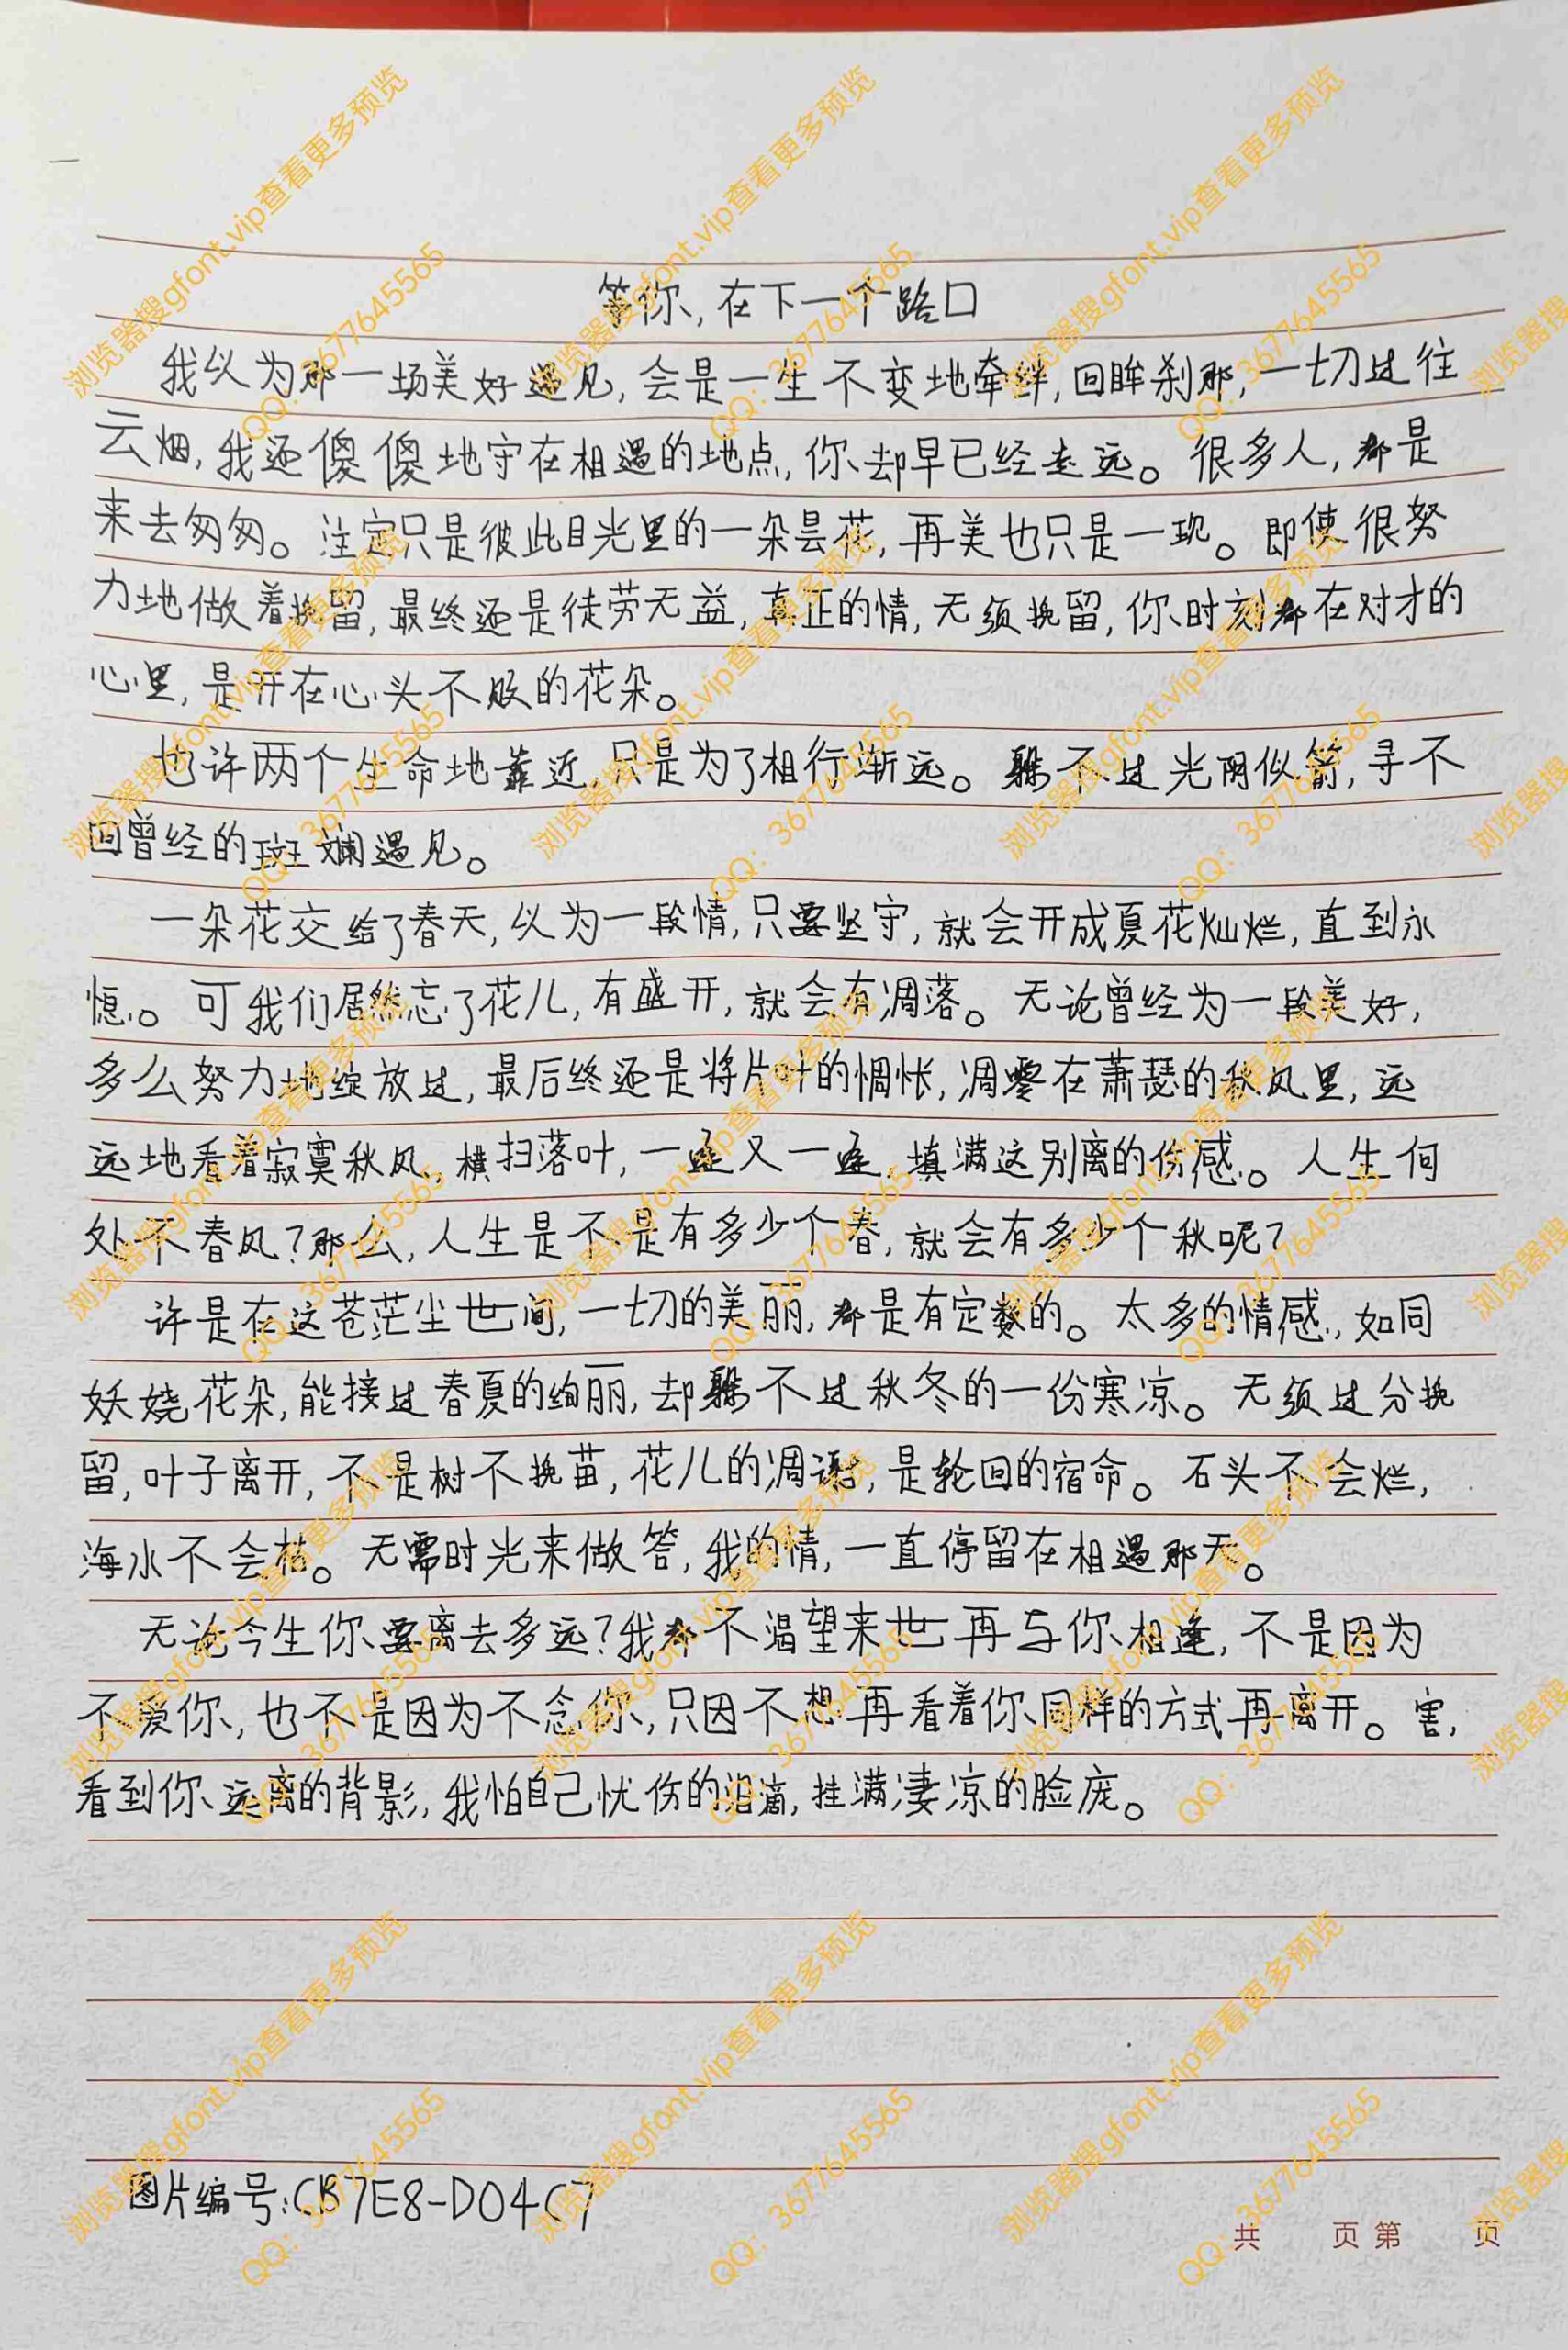 等你,在下一个路口
我以为那一场美好遇见,会是一生不变地牵绊,回眸刹那,一切过往
云烟,我还傻傻地守在相遇的地点,你却早已经走远。很多人,都是
来去匆匆。注定只是彼此目光里的一朵昙花,再美也只是一现。即使很努
力地做着挽留,最终还是徒劳无益,真正的情,无须挽留,你时刻都在对才的
心里,是开在心头不败的花朵。
也许两个生命地靠近,只是为了相行渐远。躲不过光阴似箭,寻不
回曾经的斑斓遇见。
一朵花交给了春天,以为一段情,只要坚守,就会开成夏花灿烂,直到永
恒。可我们居然忘了花儿,有盛开,就会有凋落。无论曾经为一段美好,
多么努力地绽放过,最后终还是将片叶的惆怅,凋零在萧瑟的秋风里,远
远地看着寂寞秋风,横扫落叶,一遍又一遍,填满这别离的伤感。人生何
处不春风?那么,人生是不是有多少个春,就会有多少个秋呢?
许是在这苍茫尘世间,一切的美丽,都是有定数的。太多的情感,如同
妖娆花朵,能接过春夏的绚丽,却躲不过秋冬的一份寒凉。无须过分挽
留,叶子离开,不是树不挽苗,花儿的凋谢,是轮回的宿命。石头不会烂,
海水不会枯。无需时光来做答,我的情,一直停留在相遇那天。
无论今生你要离去多远?我都不渴望来世再与你相逢,不是因为
不爱你,也不是因为不念你,只因不想再看着你同样的方式再离开。害,
看到你远离的背影,我怕自己忧伤的泪滴,挂满凄凉的脸庞。
图片编号:CB7E8-D04C7
共 页 第 页
浏览器搜gfont.vip查看更多预览
QQ: 3677645565